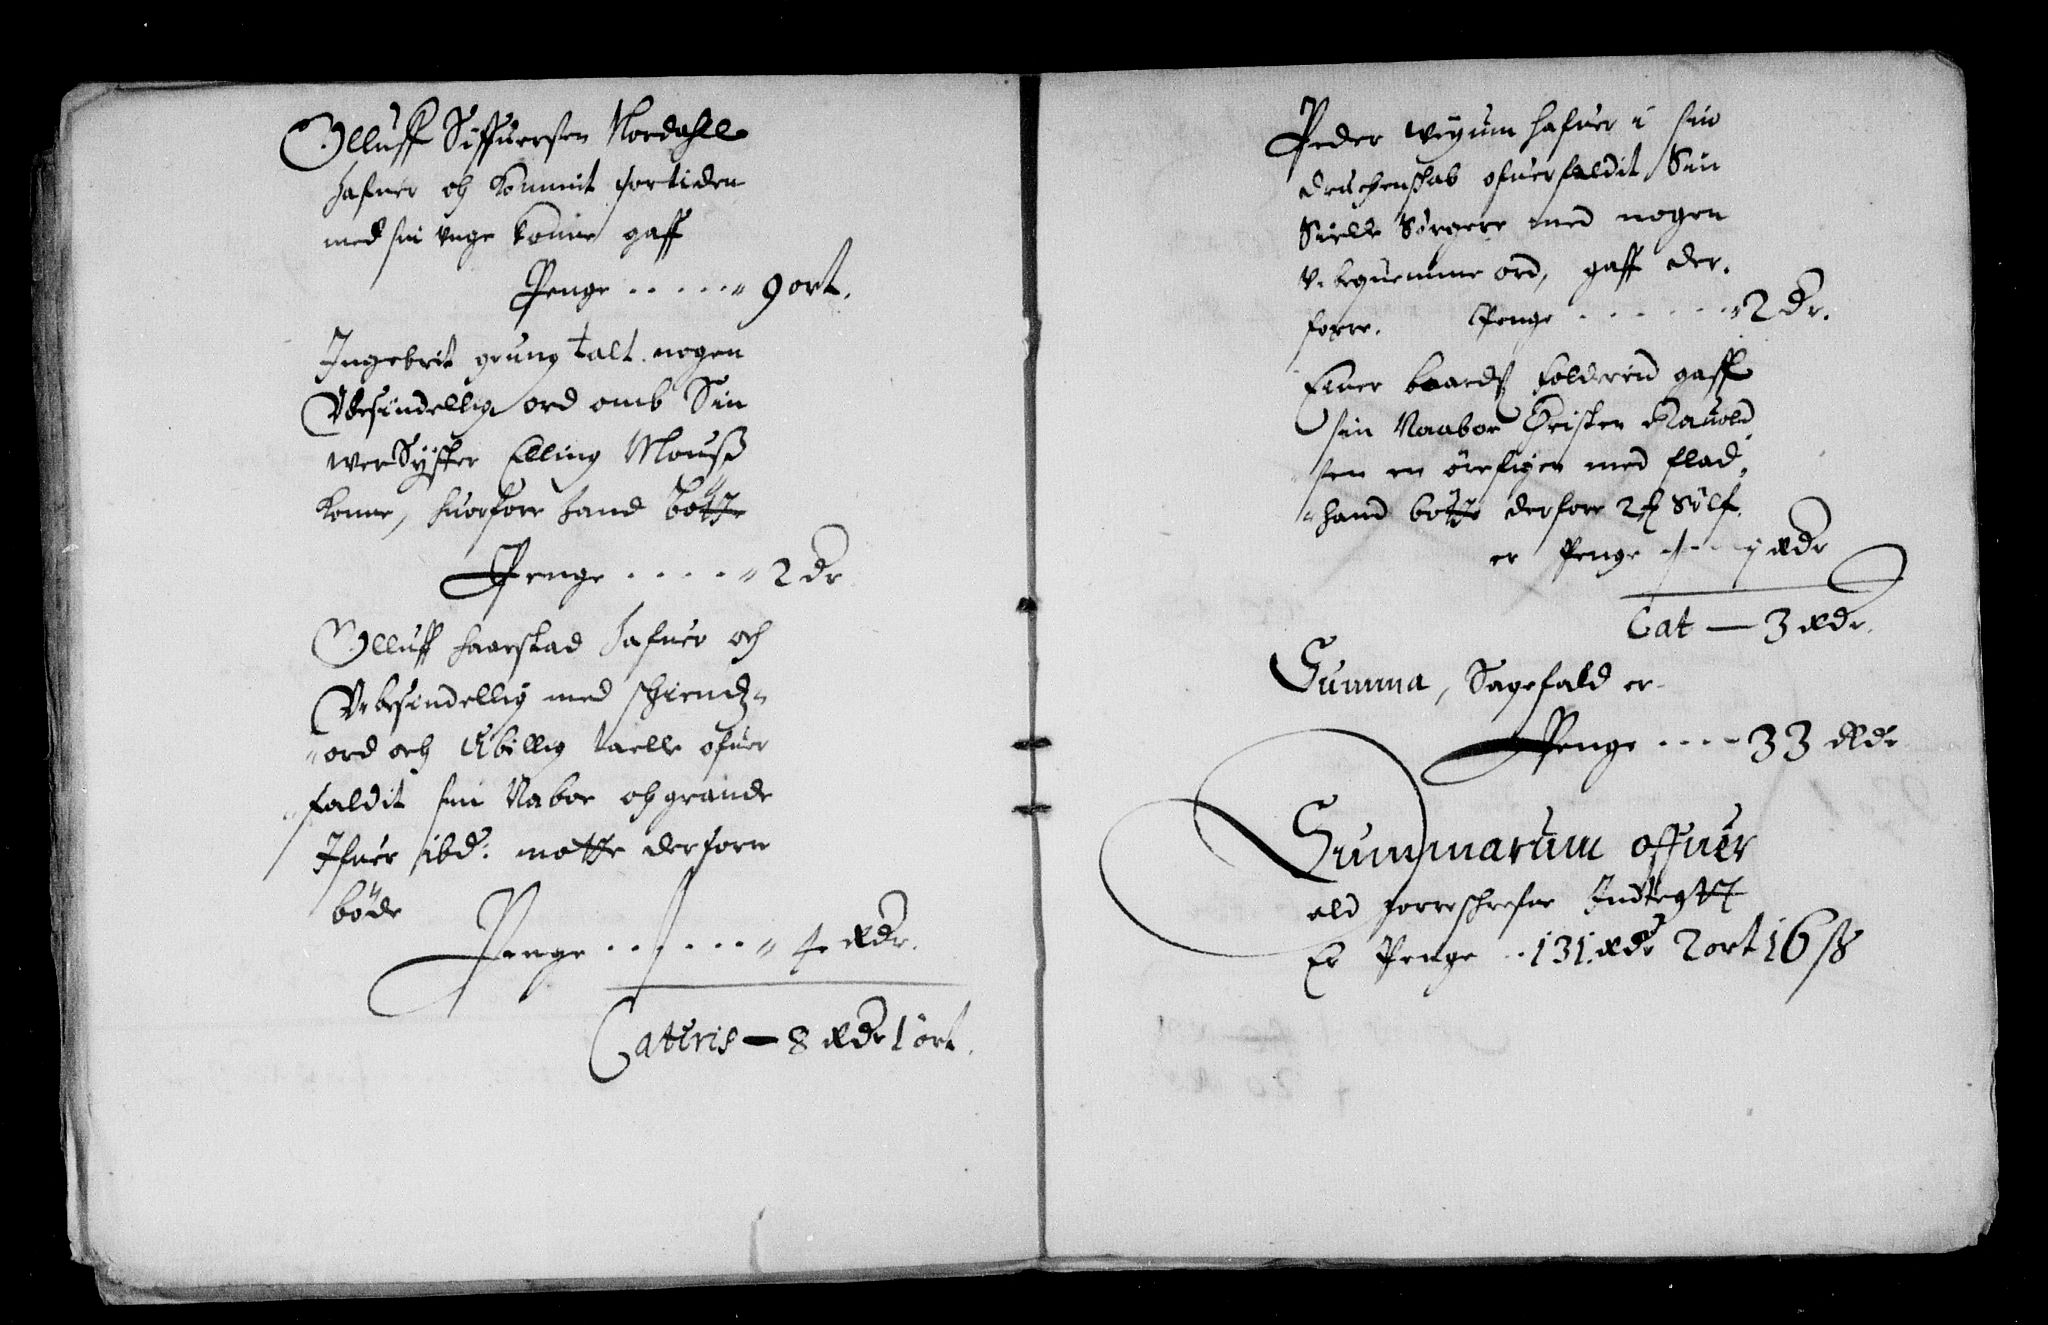 Olluff Siffuersen Nordahll
hafuer och kommit fortiden
med sin unge konne gaff
Penge . . . . . 9 ort.
Ingebrit grung talt nogen
Vbesindellig ord omb Sin
wer Syster Elling Mouß
konne, huorfore hand bøtte
Penge . . . . . 2 dr
Olluff haarstad hafuer och
Vbesindellig med schiendz
ord och Ubillig talle ofuer
faldit sin Nabor och grande
Ifuer ibd: motte derforre
bøde
Penge . . . . . . 4 Rdr.
Lateris — 8 Rdr 1 ort.
Peder Wigum hafuer i sin
druchenschab ofuerfaldit Sin
Sielle Sørgere med nogen
V. bequemme ord, gaff der.
forre. Penge . . . . . . 2 dr.
Einer baards holderind gaff
sin Naabor Christen Hauold
sen en ørefigen med flad
hand bøtte derfore 2 Sølf.
er Penge . . . . 1 Rdr
Lat — 3 Rdr.
Summa, Sagefald er
Penge . . . . 33 Rdr
Summarum offuer
ald forreschrefne Indtegtt
Er Penge . . 131 Rdr 2 ort 16 ß